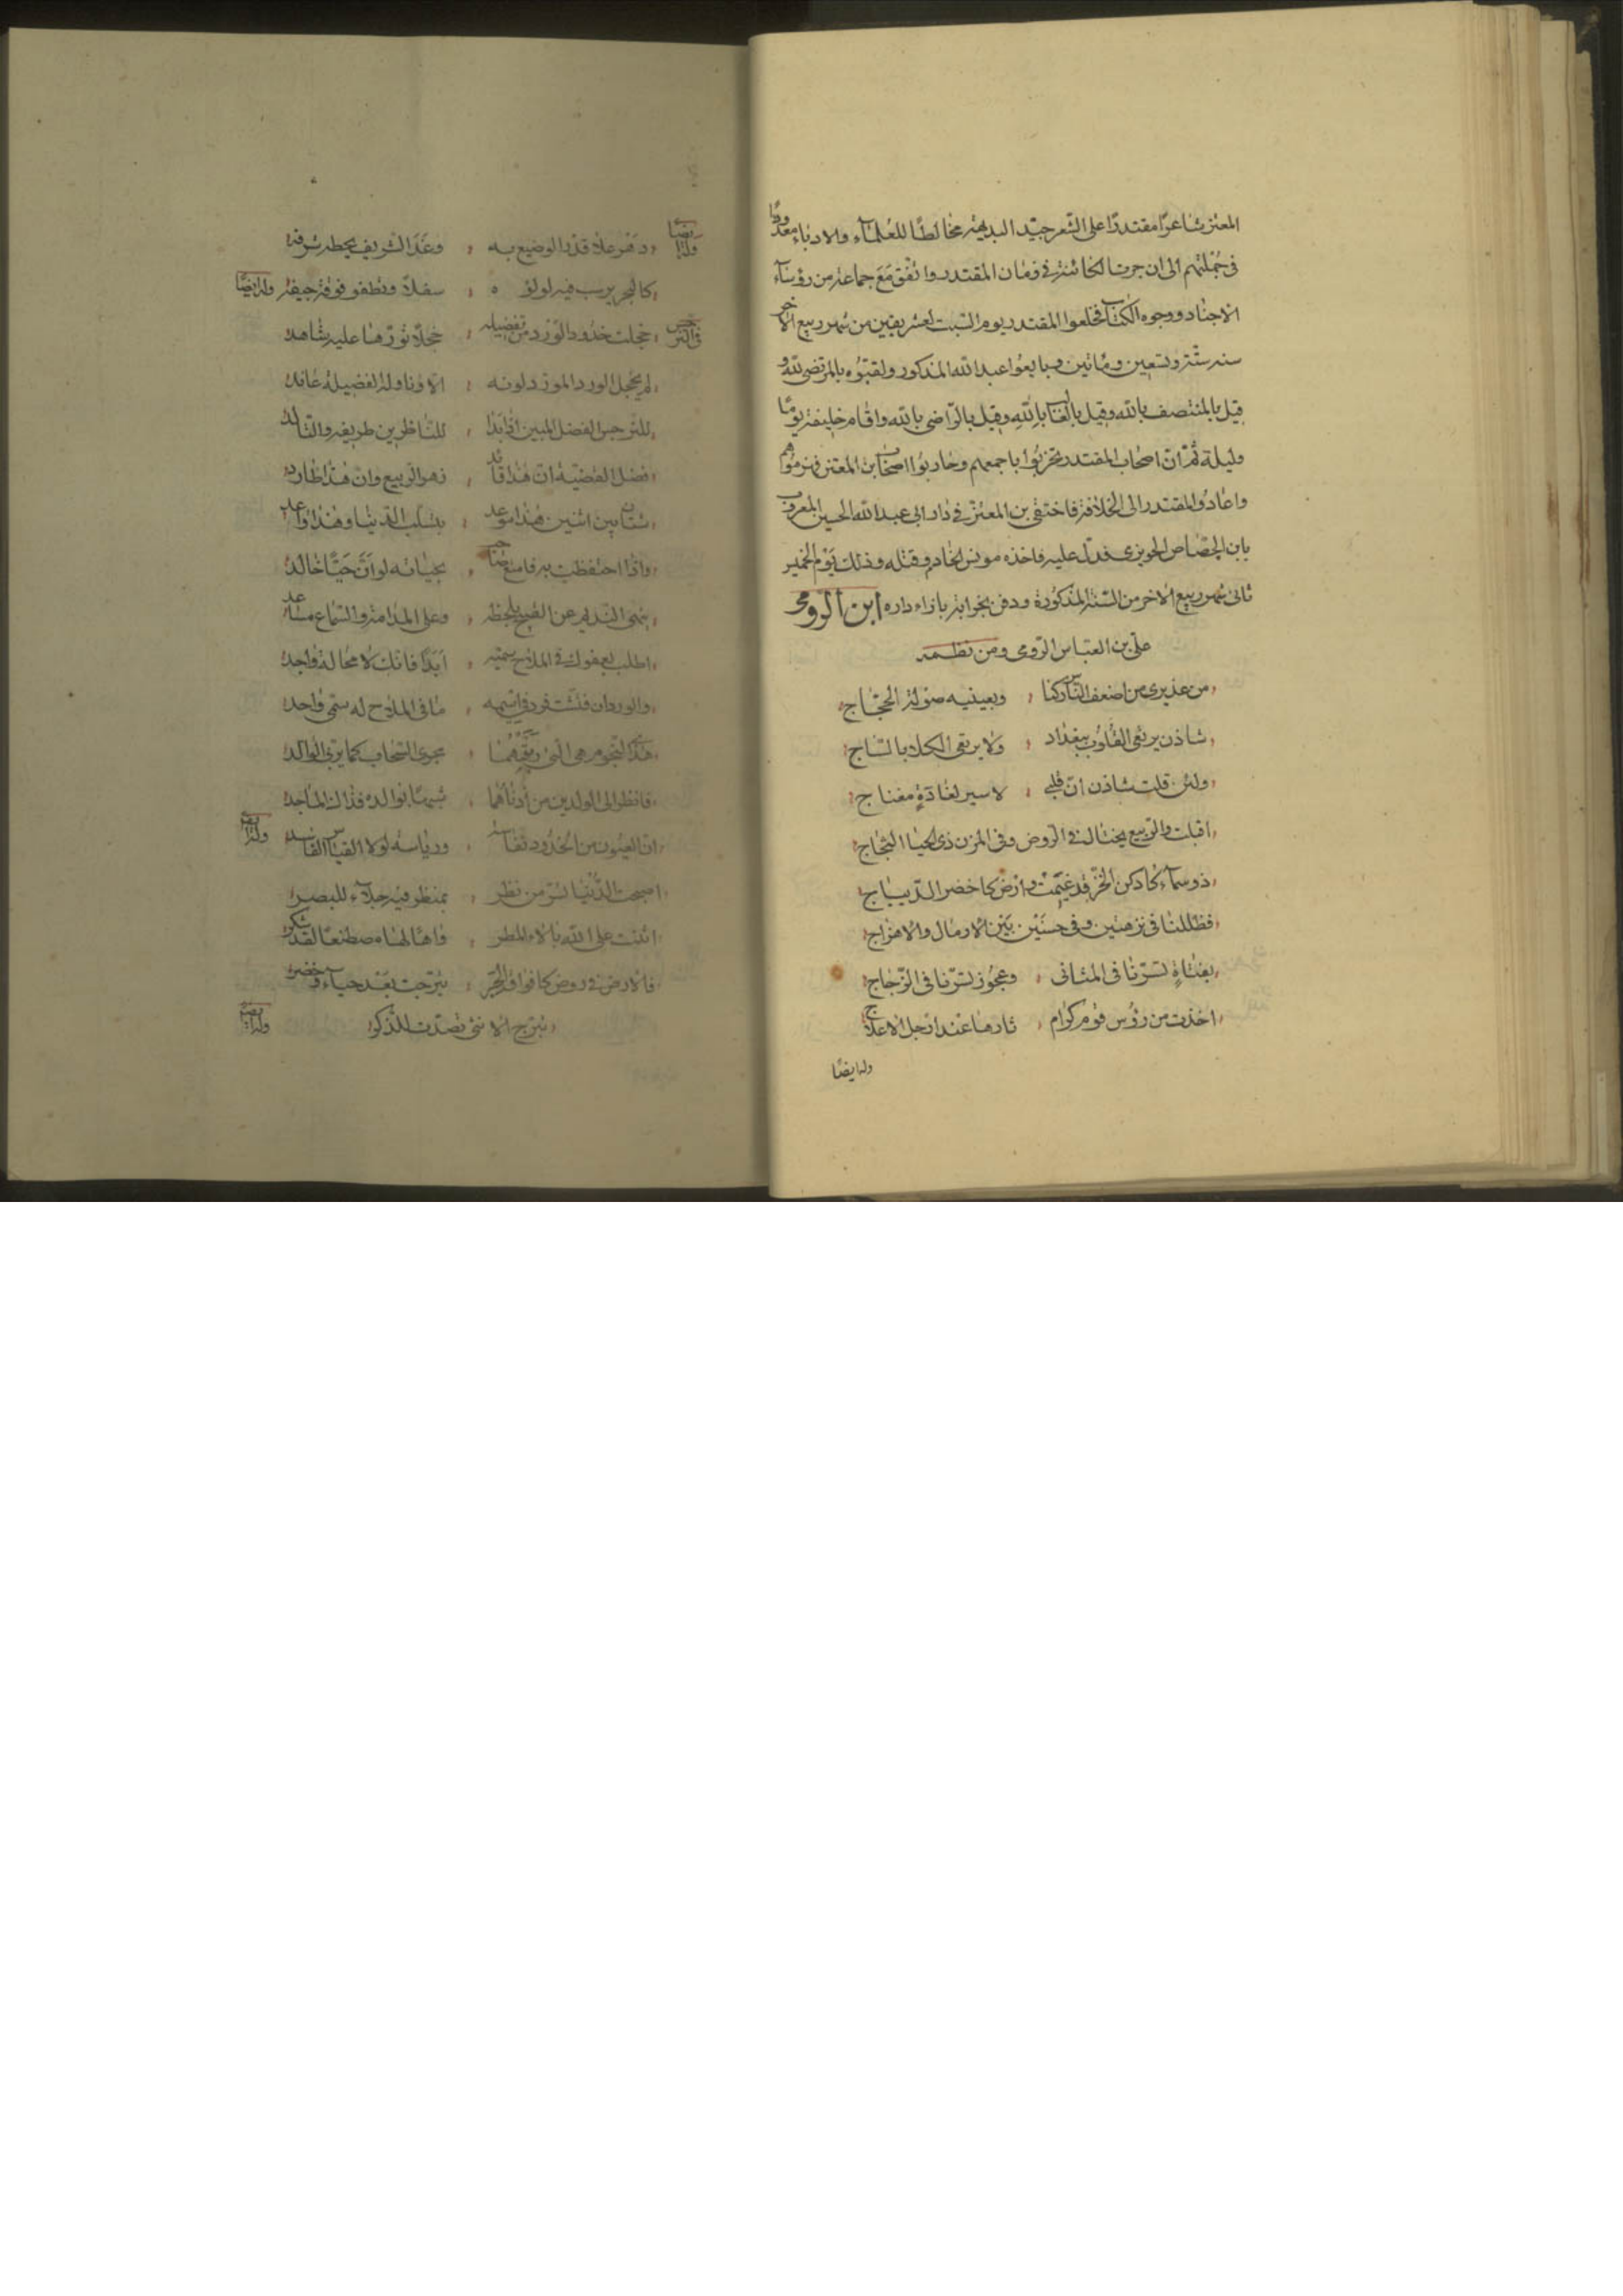 المعتز شاعرًا مقتدرًا على الشّعر جيّد البديهة مخالطًا للعُلماء والادباء معدودًا
في جُمْلتهم الى ان جرت الكائنة في زمان المقتدر واتّفق مَعَ جماعة من رؤساء
الاجناد ووجوه الكتّاب فخلعوا المقتدر يوم السّبت لعشر بقين من شهر ربيع الاخر
سنة ستّة وتسعين ومأتين وبايعُوا عبد الله المذكور ولقّبُوه بالمرتضى لله و
قيل بالمنتصف بالله وقيل بالغالب بالله وقيل بالرّاضى بالله واقام خليفة يومًا
وليلة ثمّ انّ اصحاب المقتدر تحزّبُوا باجمعهم وحاربُوا اصحاب بن المعتز فهزمُوهم
واعادُوا المقتدر الى الخلافة فاختفى بن المعتزّ في دار ابى عبد الله الحسين المعروف
بابن الجصّاص الجوهرى فدلّ عليه فاخذه مونس الخادم وقتله وذلك يَوْم الخميس
ثانى شهر ربيع الاخر من السّنة المذكورة ودفن بخرابة بازاء داره ابن الرّومى
على بن العبّاس الرّومى ومن نظمه
من عذيرى من اضعف النّاس ركنا وبعينيه صولة الحجّاج
شاذن يرتعى القلُوب ببغداد ولا يرتعى الكلا بالنّباج
ولئن قلت شاذن انّ قلبى لاسير لغادَةٍ مغناج
اقبلت والرّبيع يختال فى الرّوض وفى المزن ذى الحيا الثجّاج
ذو سماء كادكن الخزّ قد غيّمَتْ وارض كاخضر الدّيباج
فظللنا فى نزهتين وفى حسنَيْن بَيْن الارمال والاهزاج
بفتاةٍ تسرّنا فى المثانى وعجُوز تسرّنا فى الزّجاج
اخذت من رؤس قوم كرام ثارها عند ارجل الاعلاج
وله ايضًا
وله ايضًا دَهْر علا قدْر الوضيع به وغَدَا الشّريف يحطّه شرفه
كالبحر يرسب فيه لولؤه سفلا وتطفو فوقه جيفه وله ايضًا
فى النّرجس خجلت خدُود الوَرْد من تفضيله خجلا تورّدها عليه شاهد
لم يخجل الورد المورّد لونه الا وناوله الفضيلة عاند
للنّرجس الفضل المبين اذا بدا للنّاظرين طريفه والتّالد
فصل القضيّة انّ هذا قائد زهر الرّبيع وانّ هذا طارد
شتّان بين اثنين هذا موعد بتسلّب الدّنيا وهذا واعد
واذا احتفظت به فامتع صاحب بحياته لو انّ حَيًّا خالد
ينهى النّديم عن القبيح بلحظه وعلى المدامة والسّماع مساعد
اطلب بعفوك فى الملاح سميّه ابدًا فانّك لا محالة واجد
والورد ان فتّشت فرد فى اسمه ما فى الملاح له سمىّ واحد
هذى النّجوم هى الّتى ربّتهما بحيا السّحاب كما يربّى الوالد
فانظر الى الولدين من أدناهما شبهًا بوالده فذاك الماجد
اين العيُون من الخدُود نفاسة ورياسة لولا القياس الفاسد وله ايضًا
اصبحت الدّنيا تسرّ من نظر بمنظر فيه جلاء للبصر
اثنت على الله بالاء المطر واهًا لها مصطنعًا لقد شكر
فالارض فى روض كافواف الحبر تبرّجت بَعْد حياء وخفر
تبرّج الانثى تصدّت للذّكر وله ايضًا